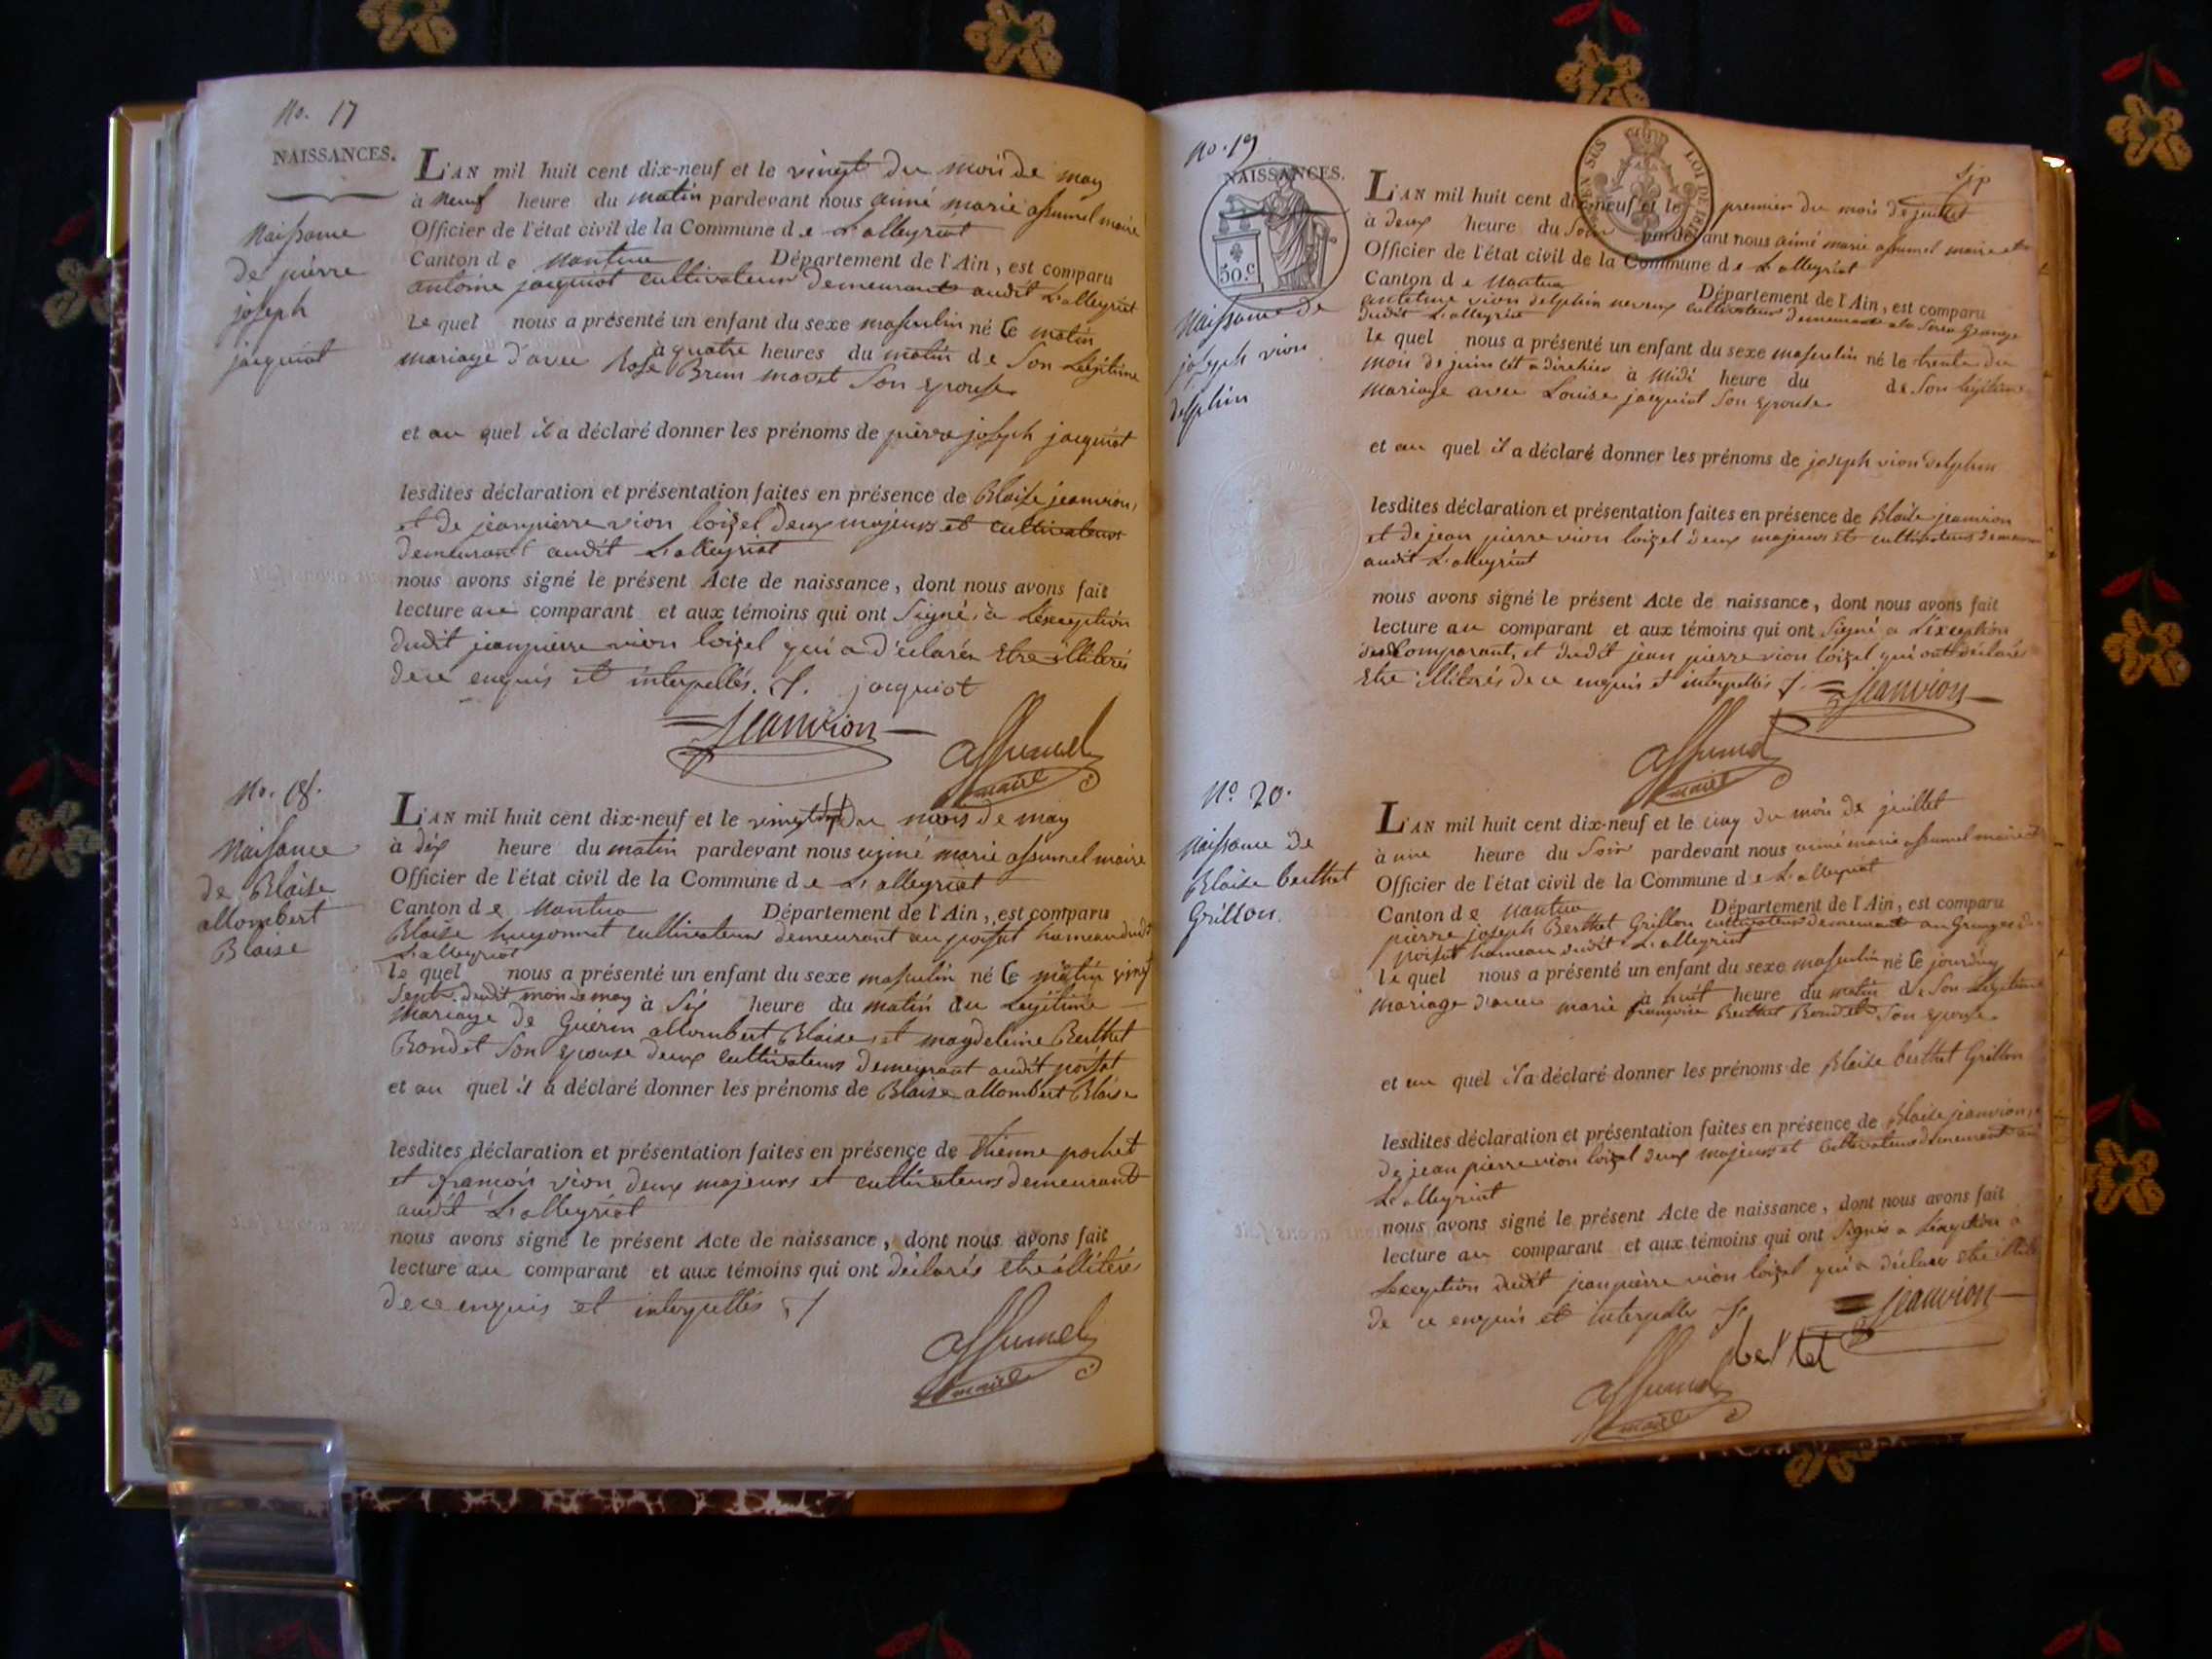 No. 17
NAISSANCES.
Naissance
de pierre
joseph
jacquiot
L'AN mil huit cent dix-neuf et le vingt du mois de may
à neuf heure du matin pardevant nous aimé marie assumel maire
Officier de l'état civil de la Commune de L'alleyriat
Canton de Nantua Département de l'Ain, est comparu
antoine jacquiot cultivateur demeurant audit L'alleyriat
Le quel nous a présenté un enfant du sexe masculin né le matin
à quatre heures du matin de son Légitime
mariage d'avec Rose Brun mavet son epouse
et au quel il a déclaré donner les prénoms de pierre joseph jacquiot
lesdites déclaration et présentation faites en présence de Blaise jeanvion,
et de jeanpierre vion loizel deux majeurs et cultivateurs
demeurant audit L'alleyriat
nous avons signé le présent Acte de naissance, dont nous avons fait
lecture au comparant et aux témoins qui ont signé, à L'exception
dudit jeanpierre vion loizel qui a déclaré Etre illiteré
de ce enquis et interpellés. jacquiot
Jeanvion
assumel
maire
No. 18.
Naissance
de Blaise
allombert
Blaise
L'AN mil huit cent dix-neuf et le vingt sept du mois de may
à dix heure du matin pardevant nous aimé marie assumel maire
Officier de l'état civil de la Commune de L'alleyriat
Canton de Nantua Département de l'Ain, est comparu
Blaise hugonnet cultivateur demeurant au poisat hameau dudit
L'alleyriat
le quel nous a présenté un enfant du sexe masculin né le matin vingt
Sept dudit mois de may à Six heure du matin du Legitime
Mariage de Guérin allombert Blaise, et magdeleine Berthet
Bondet Son epouse deux cultivateurs demeurant audit poisat
et au quel il a déclaré donner les prénoms de Blaise allombert Blaise
lesdites déclaration et présentation faites en présence de Etienne pochet
et françois vion deux majeurs et cultivateurs demeurant
audit L'alleyriat
nous avons signé le présent Acte de naissance, dont nous avons fait
lecture au comparant et aux témoins qui ont déclarés etre illiterés
de ce enquis et interpellés
assumel
maire
No. 19
NAISSANCES.
50.c
LOI DE
Naissance de
joseph vion
delphin
L'AN mil huit cent dix-neuf et le premier du mois de juillet
à deux heure du Soir pardevant nous aimé marie assumel maire et
Officier de l'état civil de la Commune de L'alleyriat
Canton de Nantua Département de l'Ain, est comparu
vion delphin cultivateur demeurant
dudit L'alleyriat
le quel nous a présenté un enfant du sexe masculin né le trente du
mois de juin cet a dire hier à midi heure du de son legitime
Mariage avec Louise jacquiot son epouse
et au quel il a déclaré donner les prénoms de joseph vion delphin
lesdites déclaration et présentation faites en présence de Blaise jeanvion
et de jean pierre vion loizel deux majeurs et cultivateurs demeurant
audit L'alleyriat
nous avons signé le présent Acte de naissance, dont nous avons fait
lecture au comparant et aux témoins qui ont signé a L'exception
Comparant, et dudit jean pierre vion loizel qui ont déclaré
Etre illiterés de ce enquis et interpellés Jeanvion
assumel
maire
No. 20.
Naissance de
Blaise berthet
Grillon.
L'AN mil huit cent dix-neuf et le cinq du mois de juillet
à une heure du Soir pardevant nous aimé marie assumel maire et
Officier de l'état civil de la Commune de L'alleyriat
Canton de Nantua Département de l'Ain, est comparu
pierre joseph Berthet Grillon cultivateur demeurant au Granges du
poisat hameau dudit L'alleyriat
le quel nous a présenté un enfant du sexe masculin né le jourdhuy
à huit heure du matin de Son Legitime
mariage d'avec marie françoise Berthet Bondet Son epouse
et au quel il a déclaré donner les prénoms de Blaise berthet Grillon
lesdites déclaration et présentation faites en présence de Blaise jeanvion,
de jean pierre vion loizel deux majeurs et cultivateurs demeurant au
L'alleyriat
nous avons signé le présent Acte de naissance, dont nous avons fait
lecture au comparant et aux témoins qui ont signés a L'exception a
Lexception dudit jeanpierre vion loizel qui a déclaré etre
de ce enquis et interpellés Jeanvion
berthet
assumel
maire